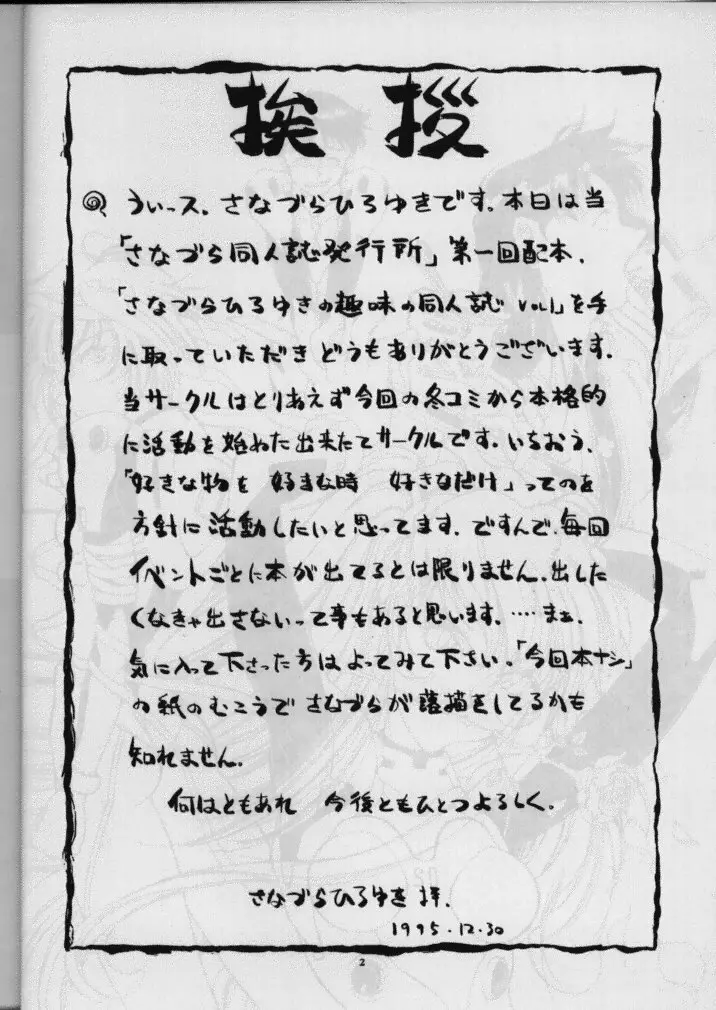 挨拶
うぃース．さなづらひろゆきです．本日は当
「さなづら同人誌発行所」第一回配本．
「さなづらひろゆきの趣味の同人誌 VOL1」を手
に取っていただき どうもありがとうございます．
当サークルはとりあえず今回の冬コミから本格的
に活動を始めた出来たてサークルです．いちおう、
「好きな物を 好きな時 好きなだけ」ってのを
方針に活動したいと思ってます．ですんで、毎回
イベントごとに本が出てるとは限りません．出した
くなきゃ出さないって事もあると思います．…… まぁ、
気に入って下さった方はよってみて下さい．「今回本ナシ」
の紙のむこうで さなづらが落描をしてるかも
知れません．
何はともあれ 今後ともひとつよろしく．
さなづらひろゆき 拝．
1995.12.30
2